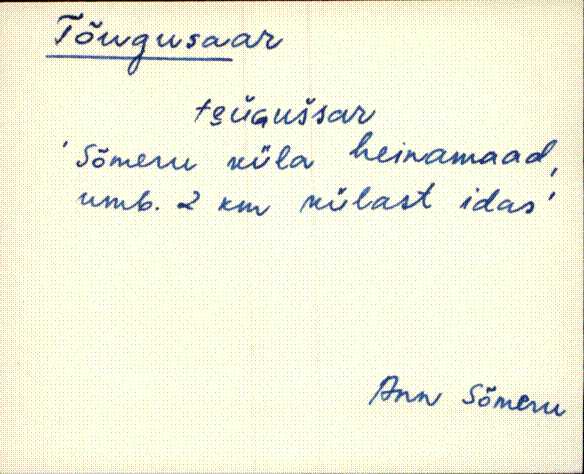 Tõugusaar
tȩŭGušsar
'Sõmeru küla heinamaad,
umb. 2 km külast idas'
Ann Sõmeru